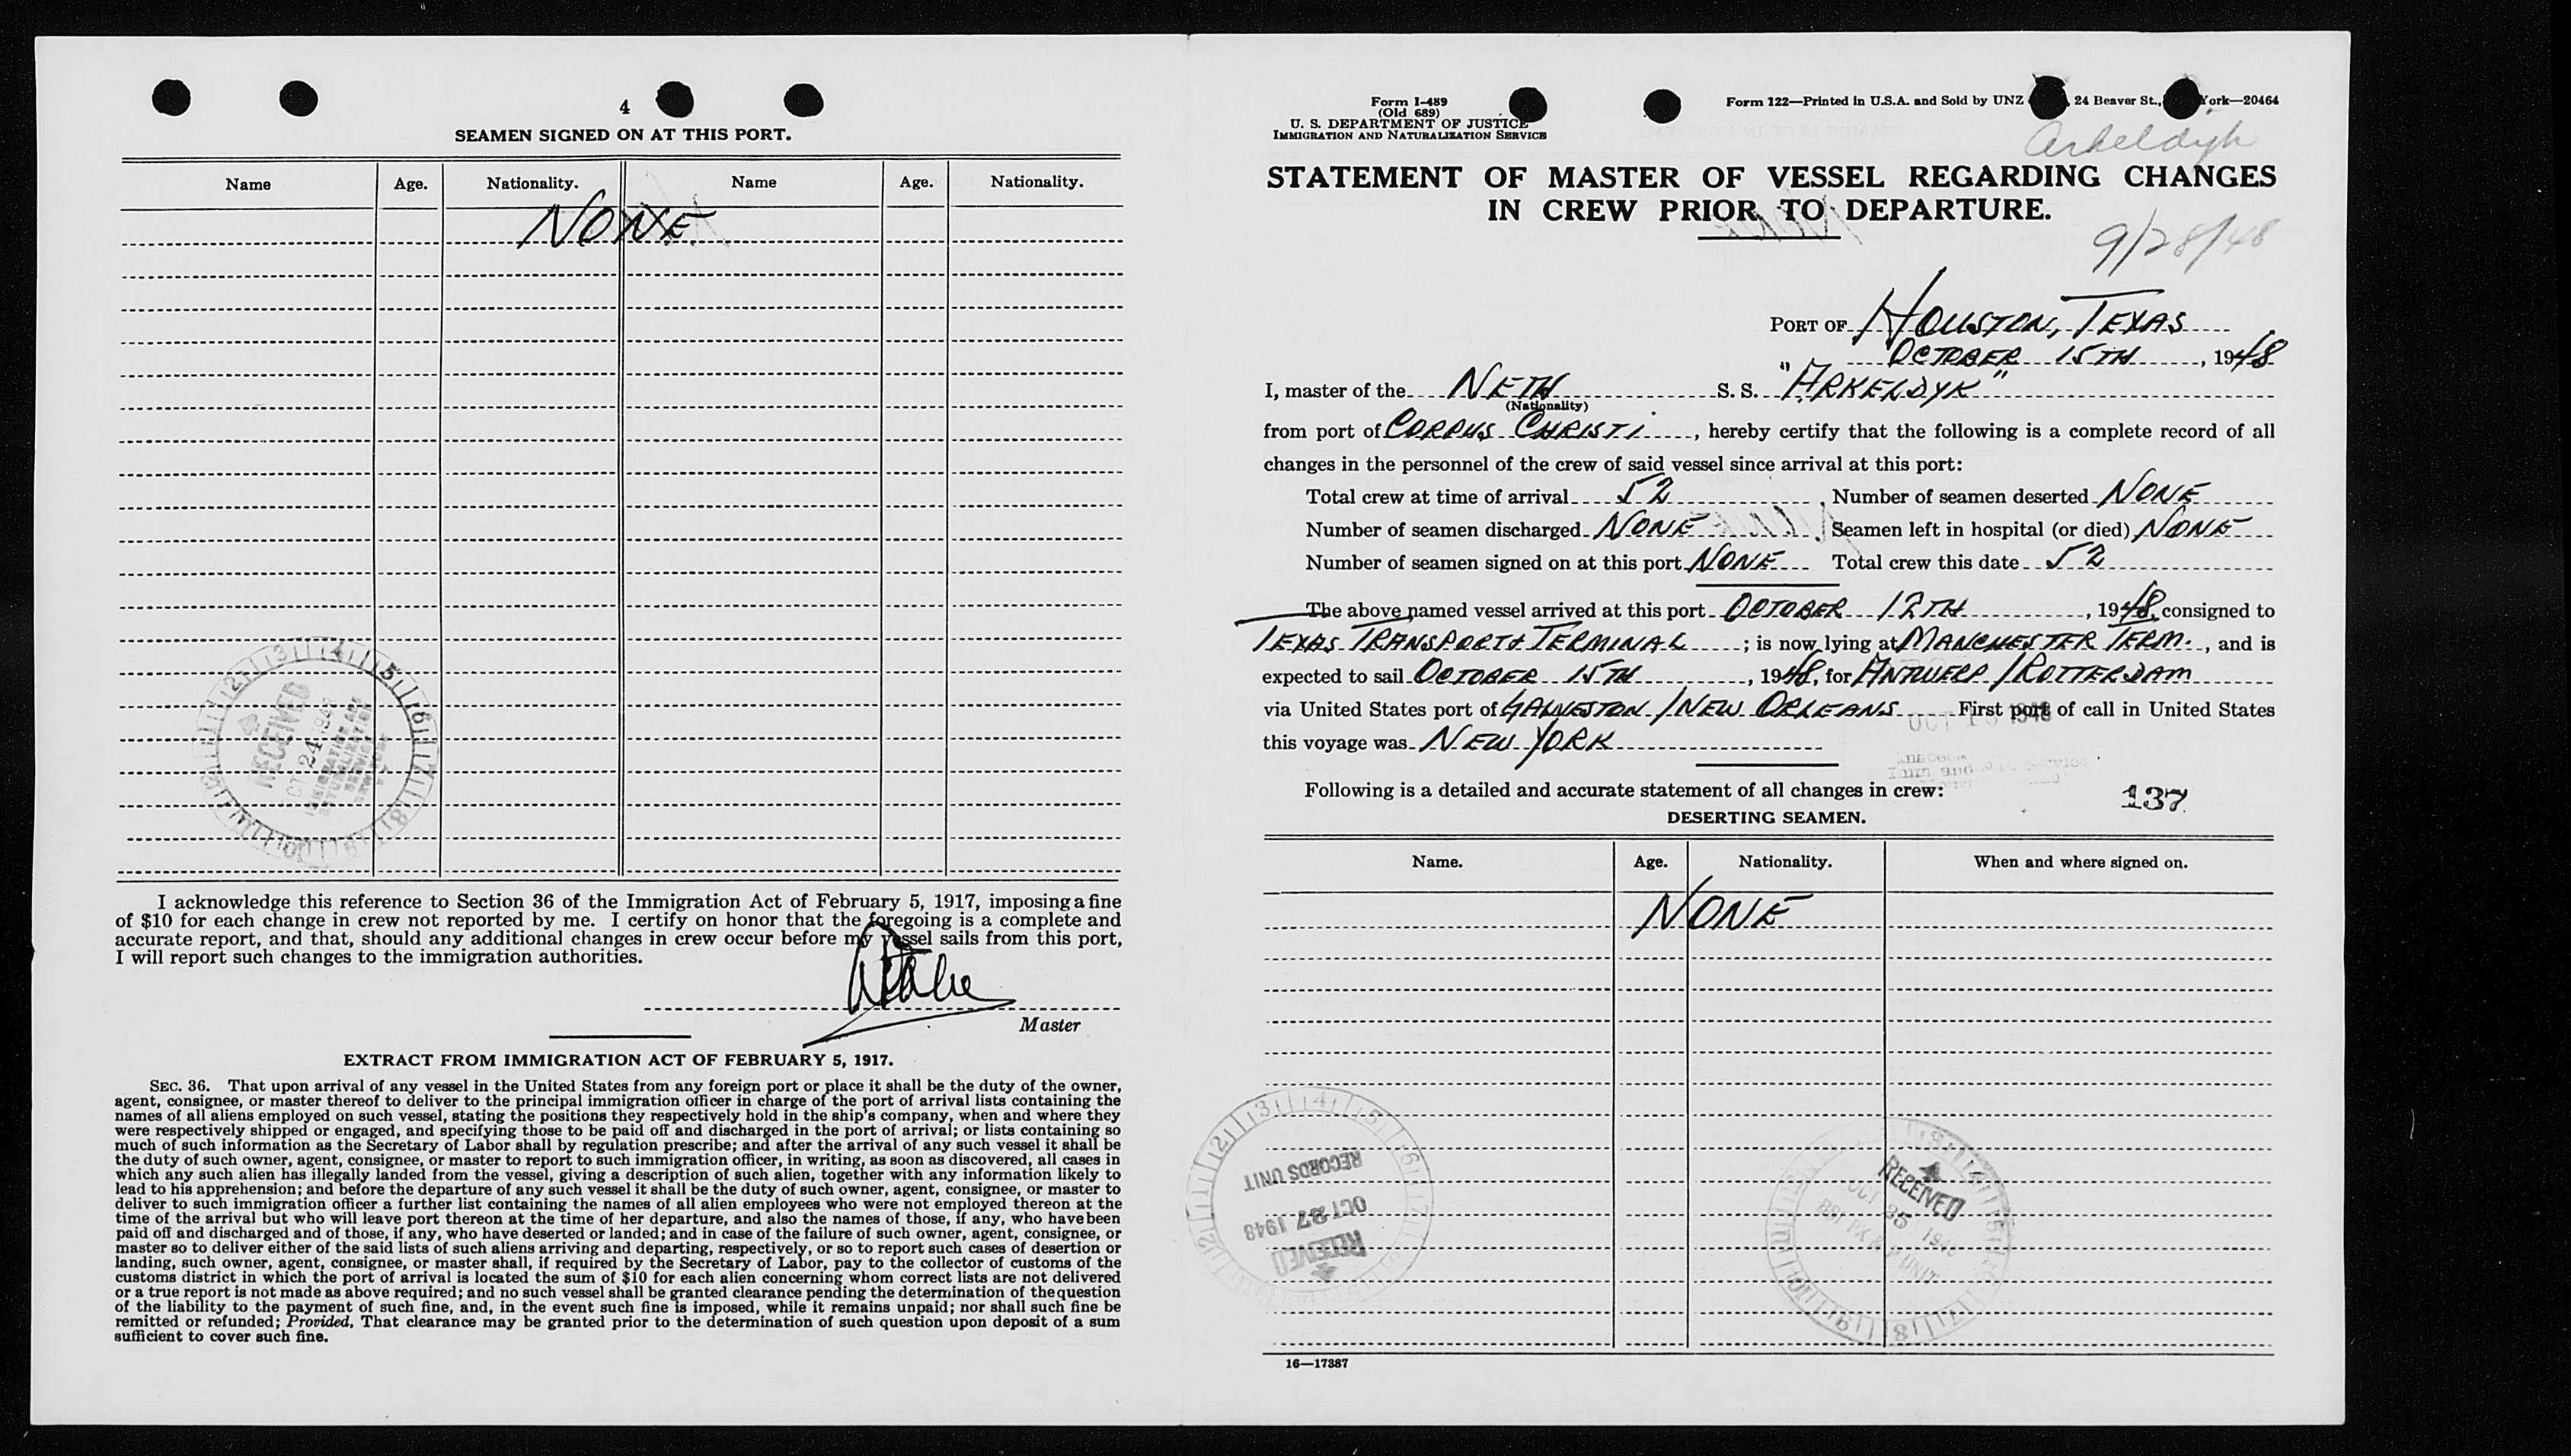 4
SEAMEN SIGNED ON AT THIS PORT.
Name Age. Nationality. Name Age. Nationality.
NONE
RECEIVED
24
I acknowledge this reference to Section 36 of the Immigration Act of February 5, 1917, imposing a fine
of $10 for each change in crew not reported by me. I certify on honor that the foregoing is a complete and
accurate report, and that, should any additional changes in crew occur before my vessel sails from this port,
I will report such changes to the immigration authorities.
Master
EXTRACT FROM IMMIGRATION ACT OF FEBRUARY 5, 1917.
SEC. 36. That upon arrival of any vessel in the United States from any foreign port or place it shall be the duty of the owner,
agent, consignee, or master thereof to deliver to the principal immigration officer in charge of the port of arrival lists containing the
names of all aliens employed on such vessel, stating the positions they respectively hold in the ship's company, when and where they
were respectively shipped or engaged, and specifying those to be paid off and discharged in the port of arrival; or lists containing so
much of such information as the Secretary of Labor shall by regulation prescribe; and after the arrival of any such vessel it shall be
the duty of such owner, agent, consignee, or master to report to such immigration officer, in writing, as soon as discovered, all cases in
which any such alien has illegally landed from the vessel, giving a description of such alien, together with any information likely to
lead to his apprehension; and before the departure of any such vessel it shall be the duty of such owner, agent, consignee, or master to
deliver to such immigration officer a further list containing the names of all alien employees who were not employed thereon at the
time of the arrival but who will leave port thereon at the time of her departure, and also the names of those, if any, who have been
paid off and discharged and of those, if any, who have deserted or landed; and in case of the failure of such owner, agent, consignee, or
master so to deliver either of the said lists of such aliens arriving and departing, respectively, or so to report such cases of desertion or
landing, such owner, agent, consignee, or master shall, if required by the Secretary of Labor, pay to the collector of customs of the
customs district in which the port of arrival is located the sum of $10 for each alien concerning whom correct lists are not delivered
or a true report is not made as above required; and no such vessel shall be granted clearance pending the determination of the question
of the liability to the payment of such fine, and, in the event such fine is imposed, while it remains unpaid; nor shall such fine be
remitted or refunded; Provided, That clearance may be granted prior to the determination of such question upon deposit of a sum
sufficient to cover such fine.
Form I-489
(Old 689)
U. S. DEPARTMENT OF JUSTICE
IMMIGRATION AND NATURALIZATION SERVICE
Form 122—Printed in U.S.A. and Sold by UNZ , 24 Beaver St., York—20464
Arkeldijk
STATEMENT OF MASTER OF VESSEL REGARDING CHANGES
IN CREW PRIOR TO DEPARTURE.
9/28/48
PORT OF HOUSTON, TEXAS
OCTOBER 15TH, 1948
I, master of the NETH S. S. "ARKELDYK"
(Nationality)
from port of CORPUS CHRISTI, hereby certify that the following is a complete record of all
changes in the personnel of the crew of said vessel since arrival at this port:
Total crew at time of arrival 52 Number of seamen deserted NONE
Number of seamen discharged NONE Seamen left in hospital (or died) NONE
Number of seamen signed on at this port NONE Total crew this date 52
The above named vessel arrived at this port OCTOBER 12TH, 1948, consigned to
TEXAS TRANSPORT & TERMINAL; is now lying at MANCHESTER TERM., and is
expected to sail OCTOBER 15TH, 1948, for ANTWERP / ROTTERDAM
via United States port of GALVESTON / NEW ORLEANS First port of call in United States
this voyage was NEW YORK
Following is a detailed and accurate statement of all changes in crew:
137
DESERTING SEAMEN.
Name. Age. Nationality. When and where signed on.
NONE
RECORDS UNIT
OCT 27 1948
RECEIVED
RECEIVED
OCT 25
16—17387